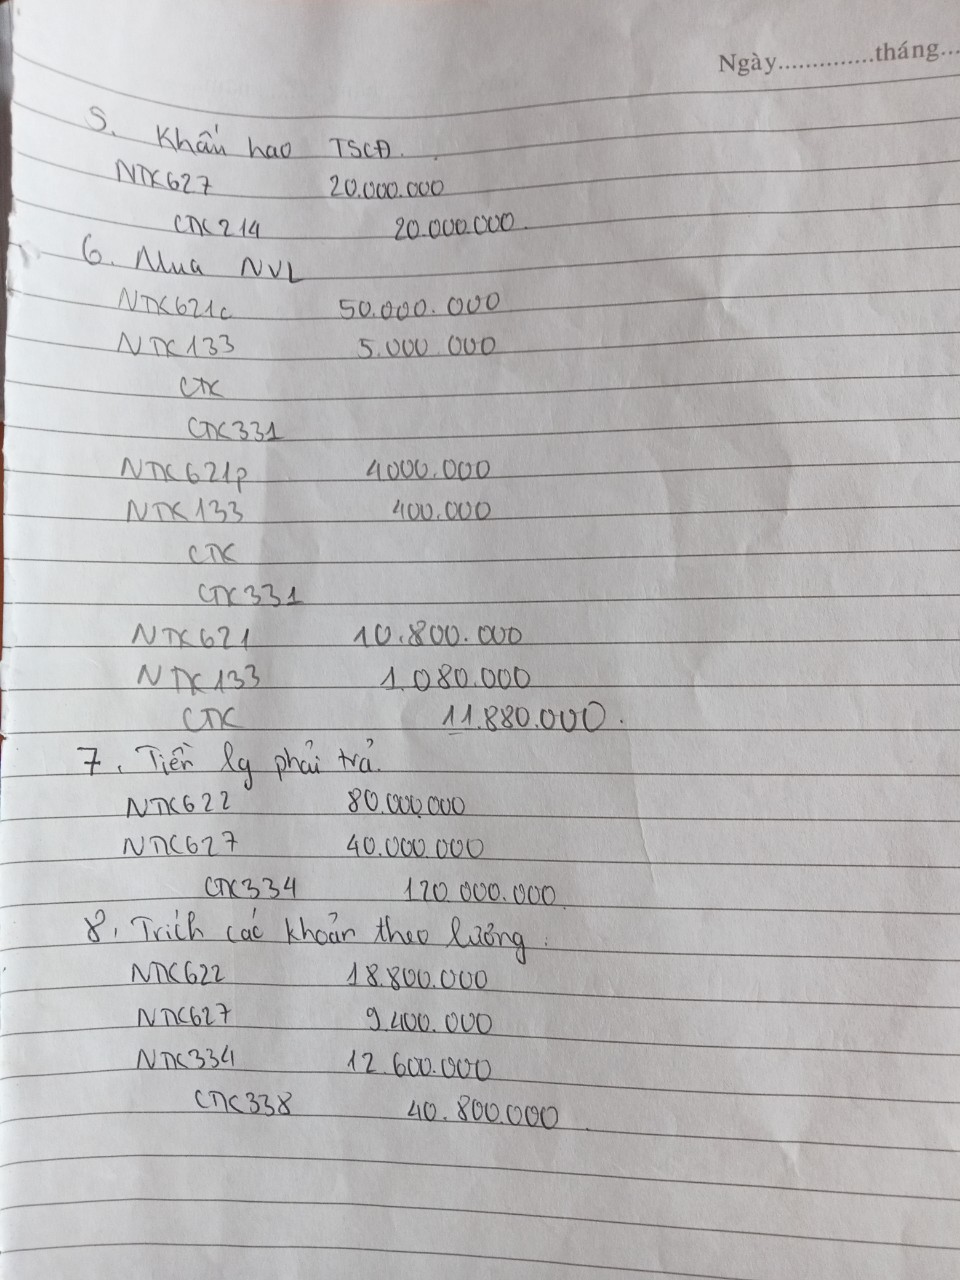 Ngày..............tháng...
5. Khấu hao TSCĐ.
NTK627 20.000.000
CTK214 20.000.000.
6. Mua NVL
NTK621c 50.000.000
NTK133 5.000 000
CTK
CTK331
NTK621p 4000.000
NTK133 400.000
CTK
CTK331
NTK621 10.800.000
NTK133 1.080.000
CTK 11.880.000.
7. Tiền lg phải trả.
NTK622 80.000.000
NTK627 40.000.000
CTK334 120.000.000
8. Trích các khoản theo lương.
NTK622 18.800.000
NTK627 9.400.000
NTK334 12.600.000
CTK338 40.800.000